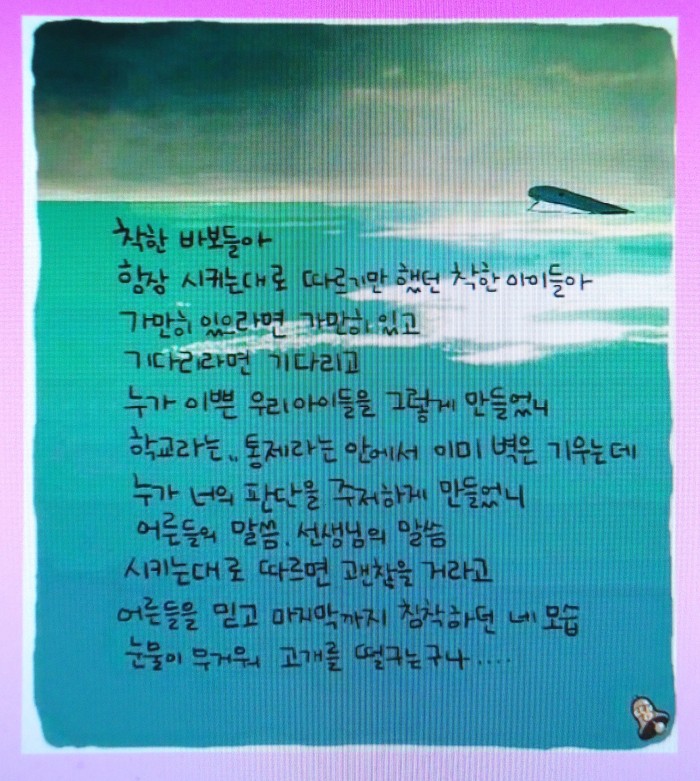 착한 바보들아
항상 시키는대로 따르기만 했던 착한 아이들아
가만히 있으라면 가만히 있고
기다리라면 기다리고
누가 이쁜 우리아이들을 그렇게 만들었니
학교라는.. 통제라는 안에서 이미 벽은 기우는데
누가 너의 판단을 주저하게 만들었니
어른들의 말씀. 선생님의 말씀
시키는대로 따르면 괜찮을 거라고
어른들을 믿고 마지막까지 침착하던 네 모습
눈물이 무거워 고개를 떨구는구나....